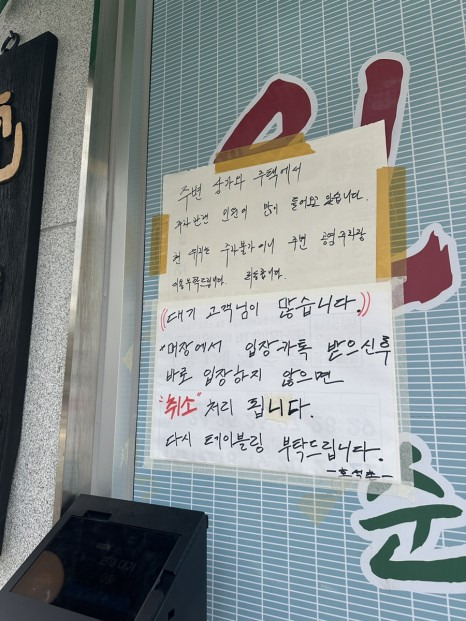 주변 상가와 주택에서
주차관련 민원이 많이 들어오고 있습니다.
현 위치는 주차불가이니 주변 공영주차장
이용 부탁드립니다. 죄송합니다.
((대기 고객님이 많습니다.))
매장에서 입장카톡 받으신후
바로 입장하지 않으면
"취소" 처리 됩니다.
다시 테이블링 부탁드립니다.
춘